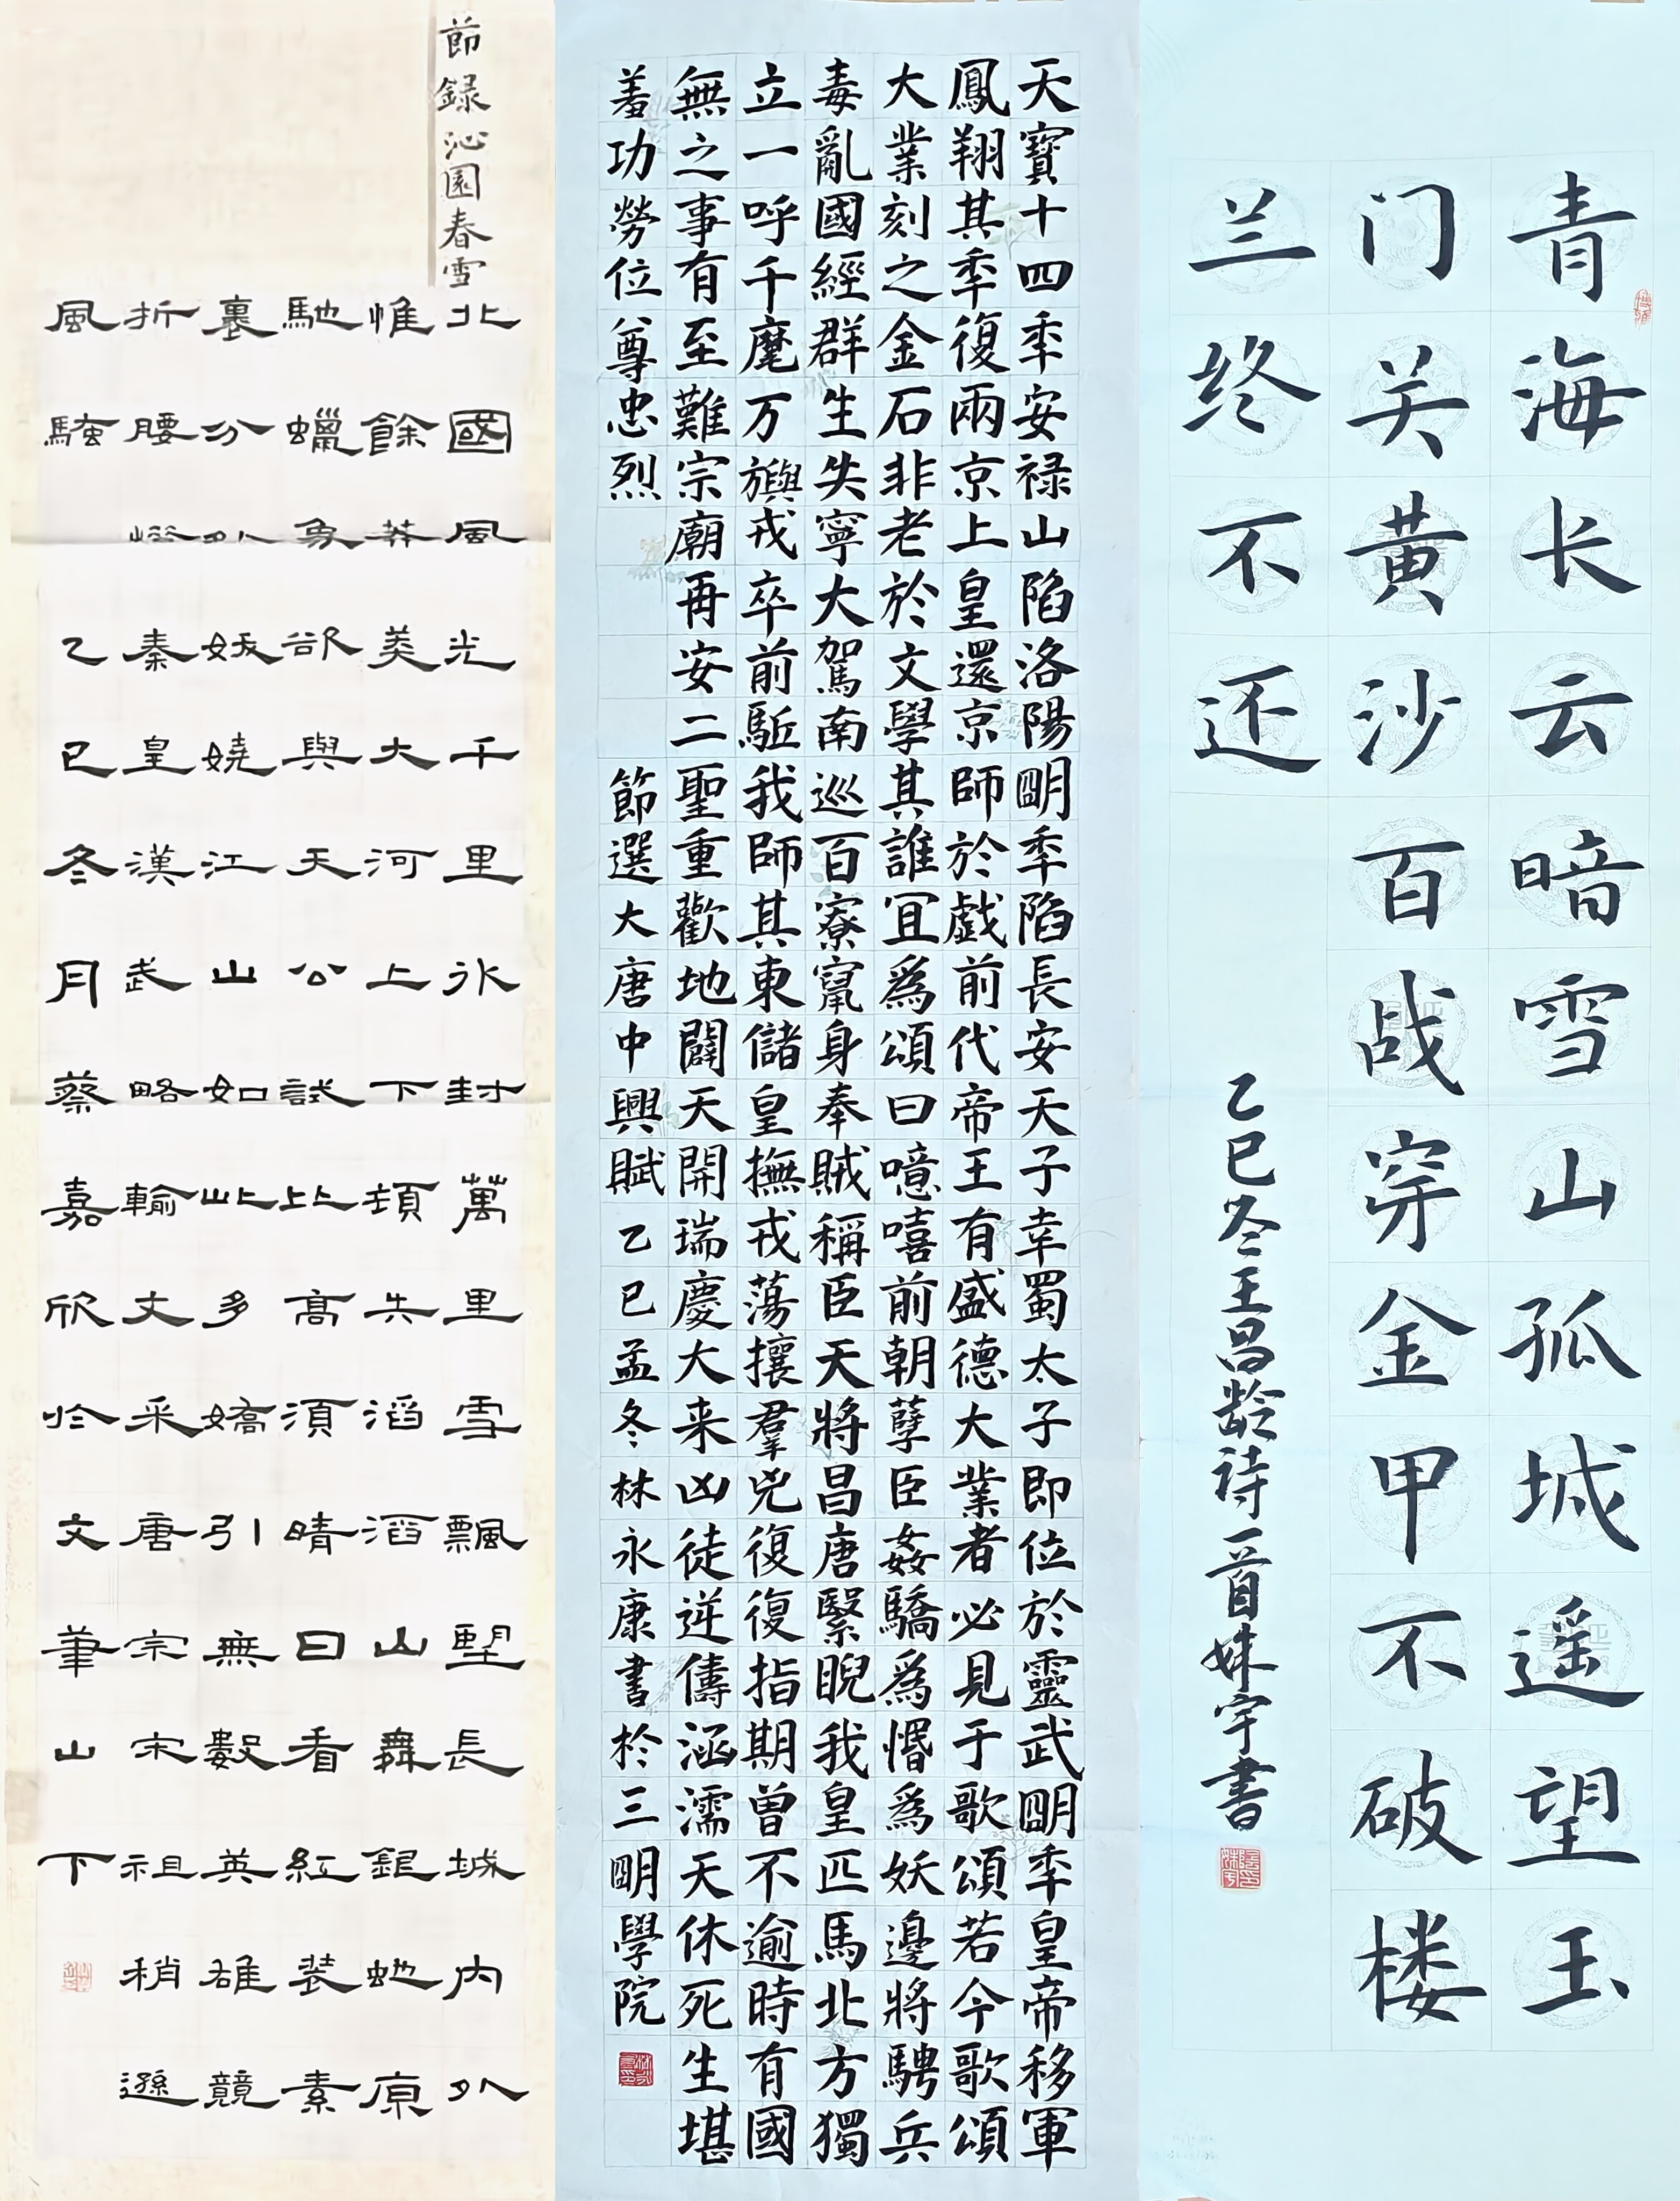 青海长云暗雪山孤城遥望玉
门关黄沙百战穿金甲不破楼
兰终不还
乙巳冬王昌龄诗一首姝宇書
天寶十四秊安禄山陷洛陽朙秊陷長安天子幸蜀太子即位於靈武朙秊皇帝移軍
鳳翔其秊復兩京上皇還京師於戲前代帝王有盛德大業者必見于歌頌若今歌頌
大業刻之金石非老於文學其誰冝爲頌曰噫嘻前朝孽臣姦驕爲惽爲妖邊將騁兵
毒亂國經群生失寧大駕南巡百寮竄身奉賊稱臣天將昌唐繄睨我皇匹馬北方獨
立一呼千麾万旟戎卒前駈我師其東儲皇撫戎蕩攘羣兇復復指期曾不逾時有國
無之事有至難宗廟再安二聖重歡地闢天開瑞慶大来凶徒逆儔涵濡天休死生堪
羞功勞位尊忠烈
節選大唐中興賦乙巳孟冬林永康書於三朙學院
節録沁園春雪
北國風光千里冰封萬里雪飄望長城內外
惟餘莽莽大河上下頓失滔滔山舞銀蛇原
馳蠟象欲與天公試比高須晴日看紅裝素
裹分外妖嬈江山如此多嬌引無數英雄競
折腰惜秦皇漢武略輸文采唐宗宋祖稍遜
風騷
乙巳冬月蔡嘉欣於文筆山下